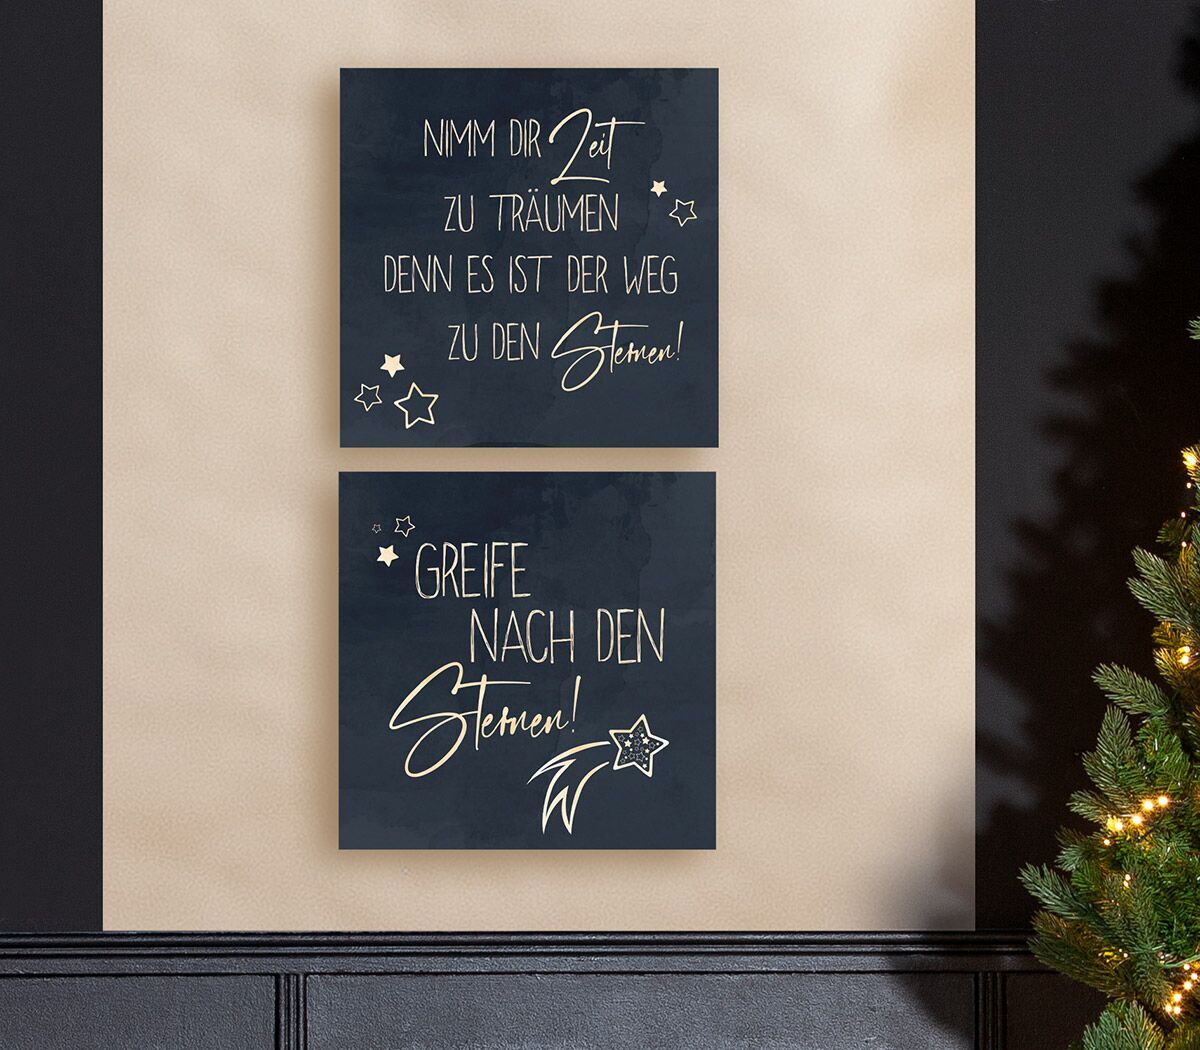 NIMM DIR Zeit
ZU TRÄUMEN
DENN ES IST DER WEG
ZU DEN Sternen!
GREIFE
NACH DEN
Sternen!